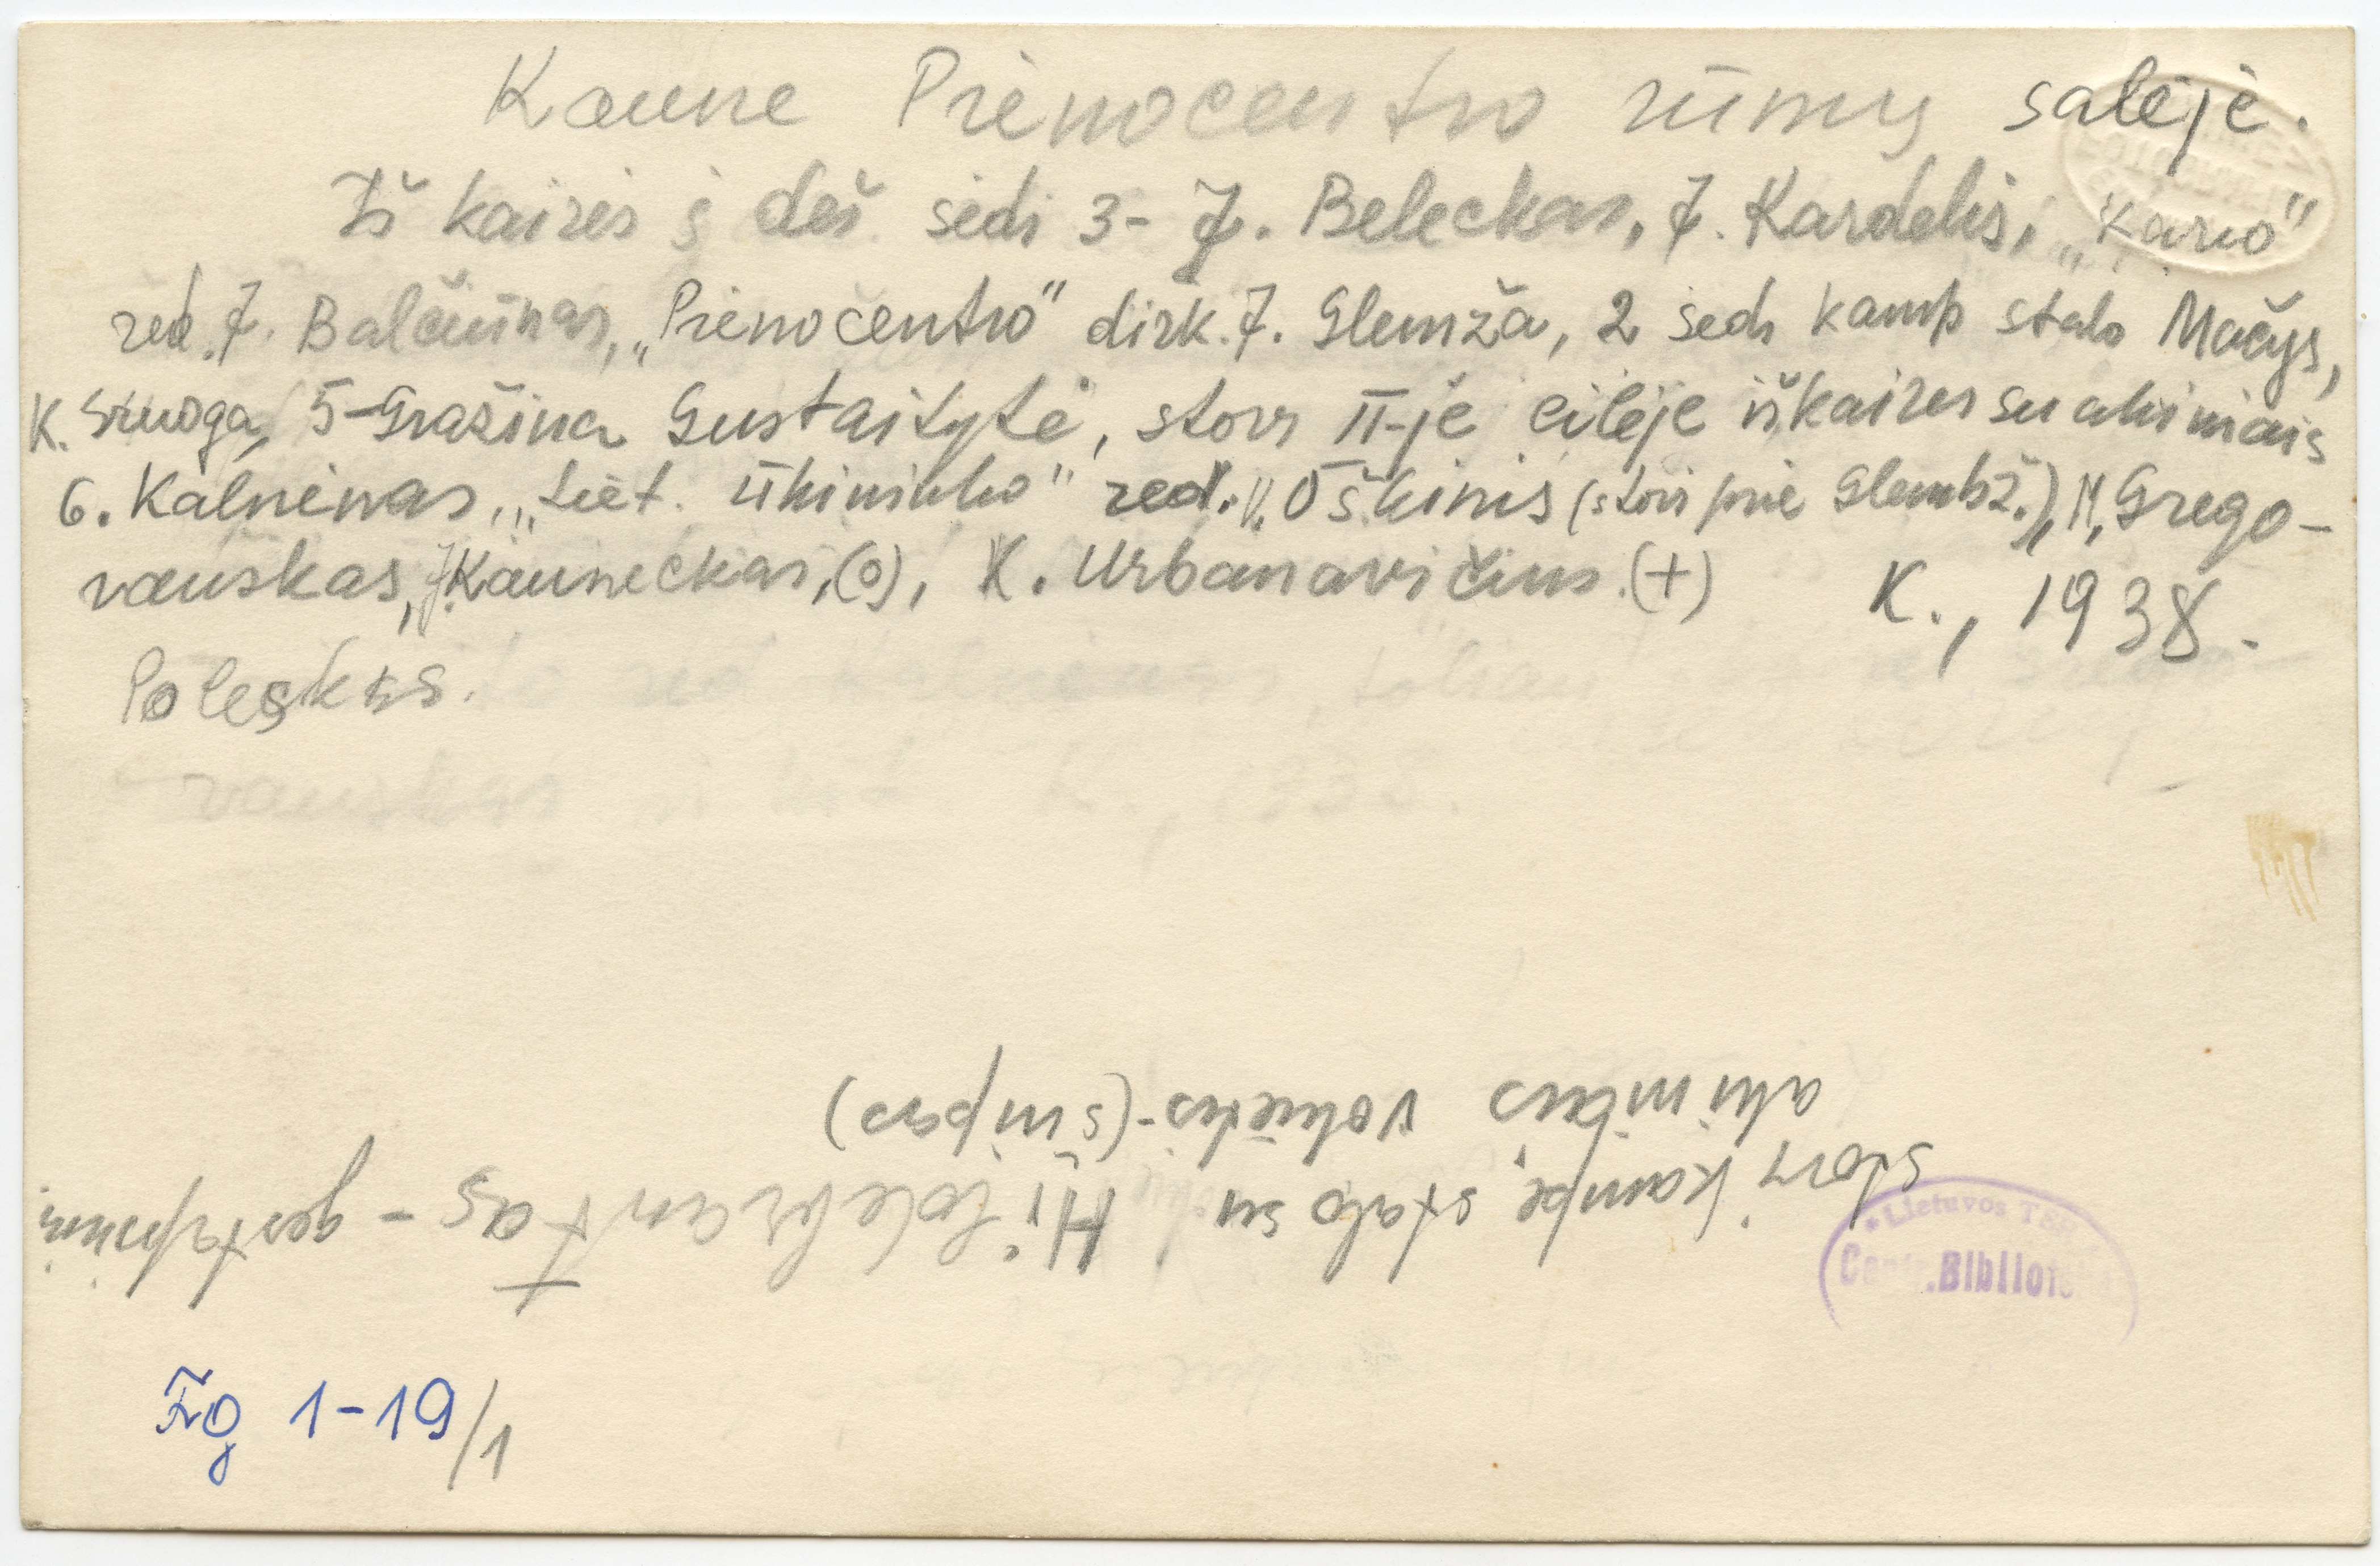 Kaune Pienocentro rūmų salėje.
Iš kairės į deš. sėdi 3- J. Beleckas, J. Kardelis, „Kario"
red. J. Balčiūnas, „Pienocentro" dirk. J. Glemža, 2 sėdi kamp stalo Mačys,
K. Sruoga, 5-Gražina Gustaitytė, stovi II-je eilėje iš kairės su akiniais
6. Kalnėnas, „Liet. Ūkininko" red. V. Oškinis (stovi prie Glembž.), M. Grego-
rauskas, J. Kauneckas, (o), K. Urbanavičius (+) K., 1938.
Poleskis.
stovi kampe stalo su Hitlebrantas -
akiniais vokietis-
Lietuvos
Biblio
Fg 1-19/1